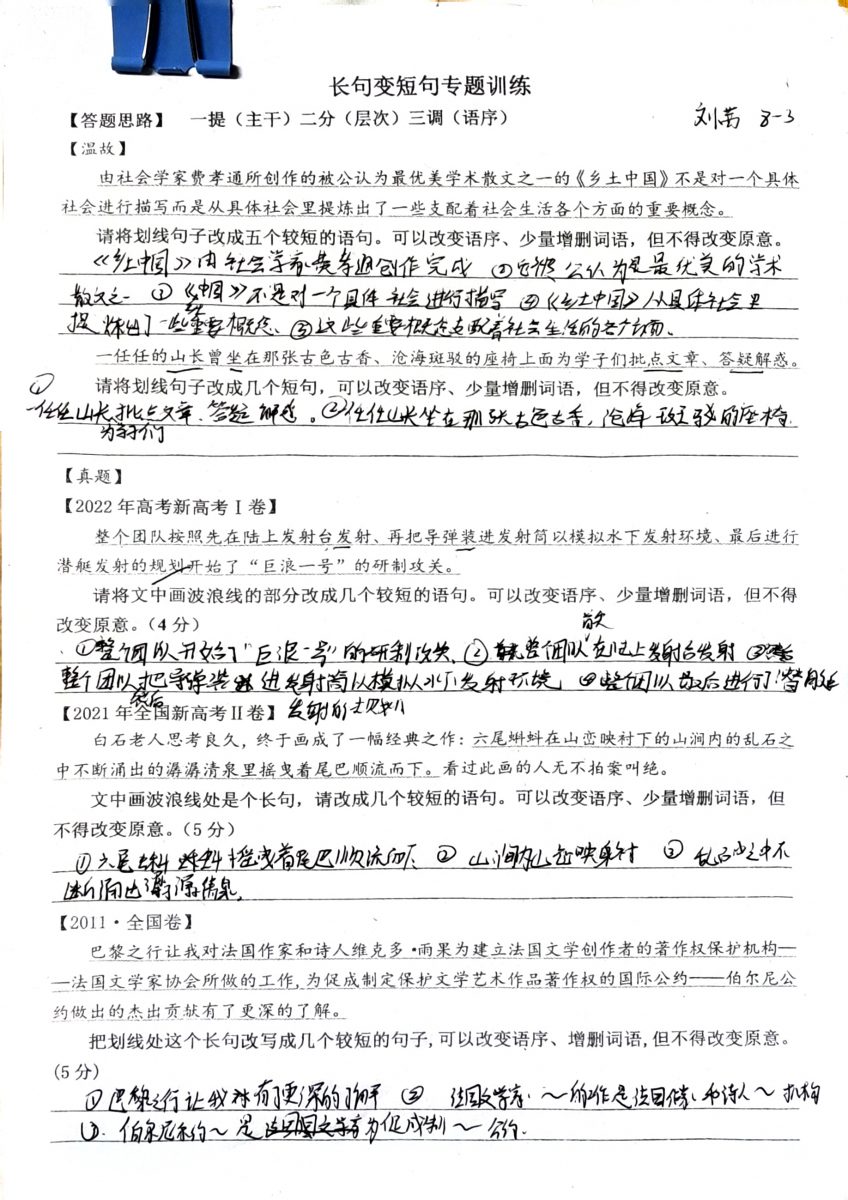 长句变短句专题训练
【答题思路】 一提（主干）二分（层次）三调（语序）
刘 8-3
【温故】
由社会学家费孝通所创作的被公认为最优美学术散文之一的《乡土中国》不是对一个具体
社会进行描写而是从具体社会里提炼出了一些支配着社会生活各个方面的重要概念。
请将划线句子改成五个较短的语句。可以改变语序、少量增删词语，但不得改变原意。
《乡土中国》由社会学家费孝通创作完成 ②它被公认为是最优美的学术
散文之一 ③《中国》不是对一个具体社会进行描写 ④《乡土中国》从具体社会里
提炼出了一些重要概念、⑤这些重要概念支配着社会生活的各个方面、
一任任的山长曾坐在那张古色古香、沧海斑驳的座椅上面为学子们批点文章、答疑解惑。
请将划线句子改成几个短句，可以改变语序、少量增删词语，但不得改变原意。
①
一任任山长批点文章、答疑解惑。②一任任山长坐在那张古色古香，沧海斑驳的座椅.
为学子们
【真题】
【2022年高考新高考Ⅰ卷】
整个团队按照先在陆上发射台发射、再把导弹装进发射筒以模拟水下发射环境、最后进行
潜艇发射的规划开始了“巨浪一号”的研制攻关。
请将文中画波浪线的部分改成几个较短的语句。可以改变语序、少量增删词语，但不得
改变原意。（4分）
①整个团队开始了“巨浪一号”的研制攻关、②整个团队在陆上发射台发射 ③
整个团队把导弹装进发射筒以模拟水下发射环境 ④整个团队最后进行了潜艇
然后
【2021年全国新高考Ⅱ卷】 发射的规划
白石老人思考良久，终于画成了一幅经典之作：六尾蝌蚪在山峦映衬下的山涧内的乱石之
中不断涌出的潺潺清泉里摇曳着尾巴顺流而下。看过此画的人无不拍案叫绝。
文中画波浪线处是个长句，请改成几个较短的语句。可以改变语序、少量增删词语，但
不得改变原意。（5分）
①六尾蝌蚪摇曳着尾巴顺流而下 ② 山涧内山峦映衬 ③ 乱石之中不
断涌出潺潺清泉.
【2011·全国卷】
巴黎之行让我对法国作家和诗人维克多·雨果为建立法国文学创作者的著作权保护机构—
—法国文学家协会所做的工作，为促成制定保护文学艺术作品著作权的国际公约——伯尔尼公
约做出的杰出贡献有了更深的了解。
把划线处这个长句改写成几个较短的句子，可以改变语序、增删词语，但不得改变原意。
（5分）
①巴黎之行让我对有了更深的了解 ② 法国文学家～的工作是法国作家和诗人～机构
③. 伯尔尼公约～是为促成制～公约.